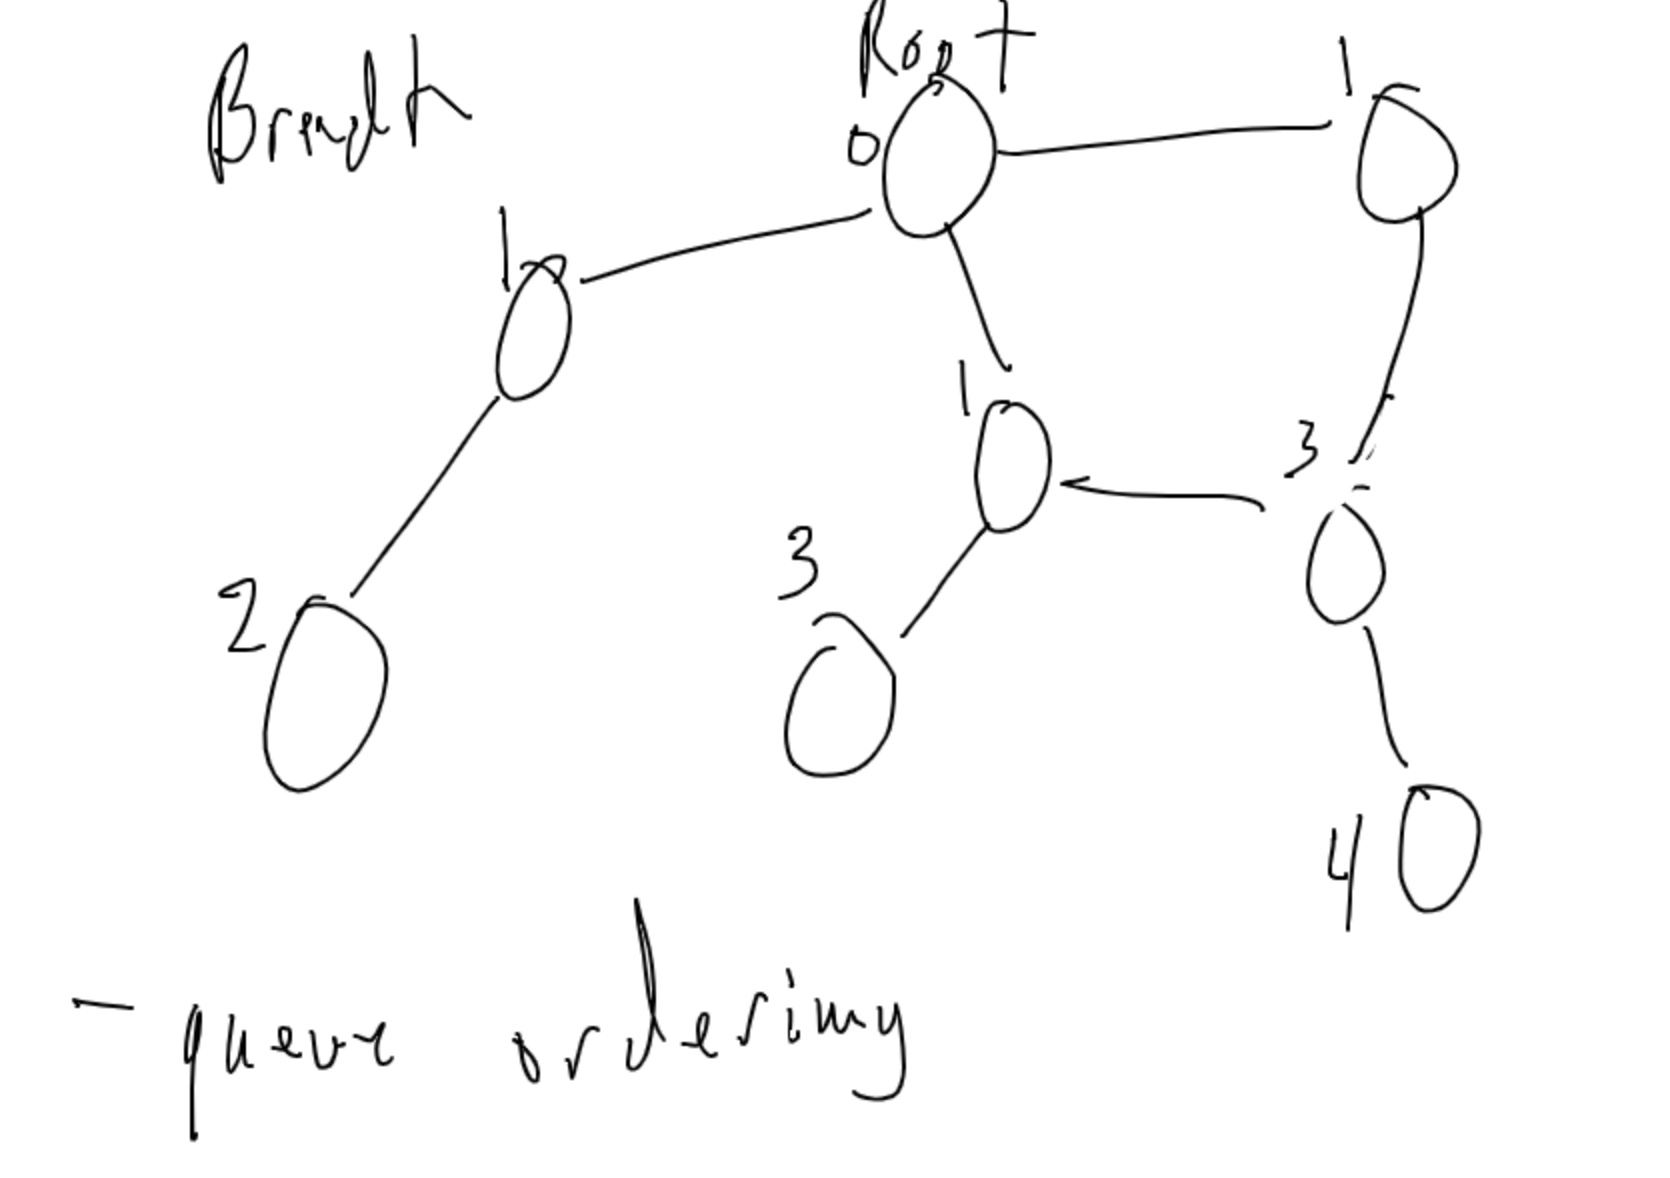 Breadth
Root
0
1
1
1
3
3
2
4
- queue ordering